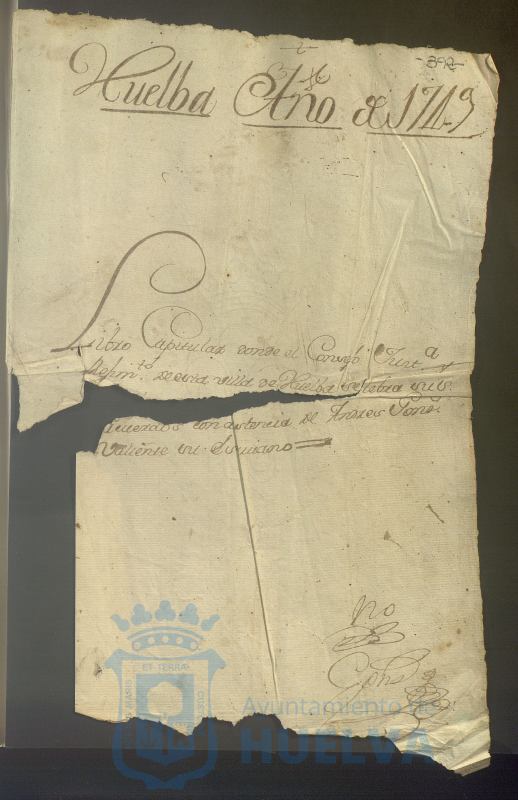 -392-
Huelba Año de 1743
Libro Capitular donde el Consejo Just.ª y
Regim.to de esta villa de Huelba selebra sus
acuerdos con asistencia de Andres
Valiente su escrivano
No
ET TERRÆ
Ayuntamiento de
HUELVA